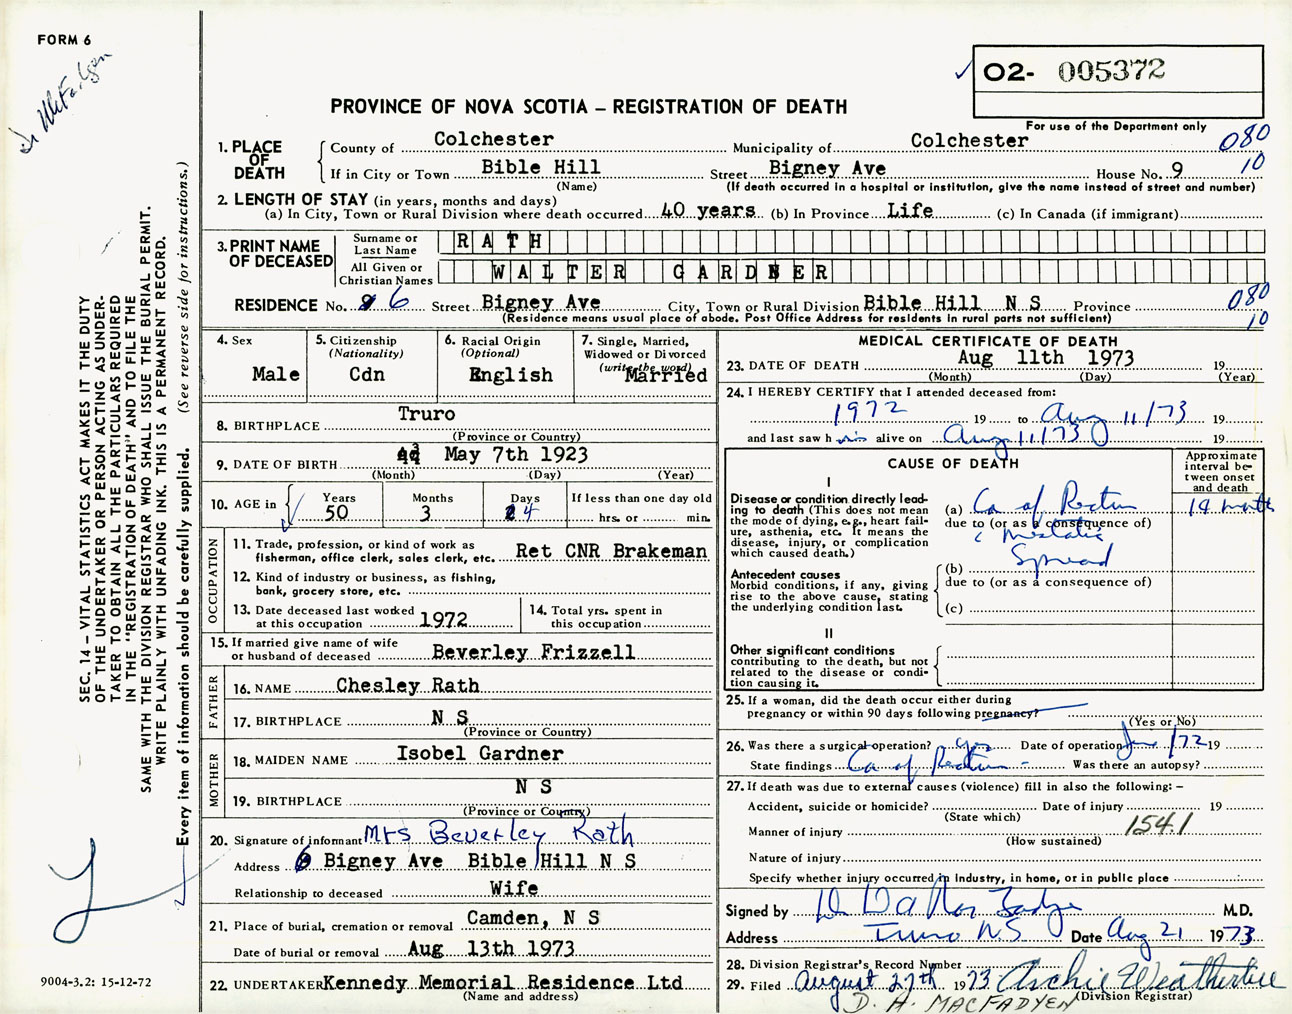 FORM 6
O2- 005372
PROVINCE OF NOVA SCOTIA – REGISTRATION OF DEATH
For use of the Department only
1. PLACE OF DEATH
County of Colchester Municipality of Colchester 080
If in City or Town Bible Hill Street Bigney Ave House No. 9 10
(Name) (If death occurred in a hospital or institution, give the name instead of street and number)
2. LENGTH OF STAY (in years, months and days)
(a) In City, Town or Rural Division where death occurred 40 years (b) In Province Life (c) In Canada (if immigrant)
3. PRINT NAME OF DECEASED
Surname or Last Name RATH
All Given or Christian Names WALTER GARDNER
RESIDENCE No. 6 Street Bigney Ave City, Town or Rural Division Bible Hill N S Province 080
(Residence means usual place of abode. Post Office Address for residents in rural parts not sufficient) 10
4. Sex Male
5. Citizenship (Nationality) Cdn
6. Racial Origin (Optional) English
7. Single, Married, Widowed or Divorced (write the word) Married
8. BIRTHPLACE Truro
(Province or Country)
9. DATE OF BIRTH May 7th 1923
(Month) (Day) (Year)
10. AGE in Years 50 Months 3 Days 4 If less than one day old hrs. or min.
OCCUPATION
11. Trade, profession, or kind of work as fisherman, office clerk, sales clerk, etc. Ret CNR Brakeman
12. Kind of industry or business, as fishing, bank, grocery store, etc.
13. Date deceased last worked at this occupation 1972
14. Total yrs. spent in this occupation
15. If married give name of wife or husband of deceased Beverley Frizzell
FATHER
16. NAME Chesley Rath
17. BIRTHPLACE N S
(Province or Country)
MOTHER
18. MAIDEN NAME Isobel Gardner
19. BIRTHPLACE N S
(Province or Country)
20. Signature of informant Mrs Beverley Rath
Address 6 Bigney Ave Bible Hill N S
Relationship to deceased Wife
21. Place of burial, cremation or removal Camden, N S
Date of burial or removal Aug 13th 1973
22. UNDERTAKER Kennedy Memorial Residence Ltd
(Name and address)
MEDICAL CERTIFICATE OF DEATH
23. DATE OF DEATH Aug 11th 1973 19
(Month) (Day) (Year)
24. I HEREBY CERTIFY that I attended deceased from:
1972 19 to Aug 11/73 19
and last saw him alive on Aug 11/73 19
CAUSE OF DEATH
Approximate interval between onset and death
I
Disease or condition directly leading to death (This does not mean the mode of dying, e.g., heart failure, asthenia, etc. It means the disease, injury, or complication which caused death.)
(a) Ca of Rectum
due to (or as a consequence of)
c Metastatic
Spread
Antecedent causes
Morbid conditions, if any, giving rise to the above cause, stating the underlying condition last.
(b)
due to (or as a consequence of)
(c)
II
Other significant conditions contributing to the death, but not related to the disease or condition causing it.
25. If a woman, did the death occur either during pregnancy or within 90 days following pregnancy?
(Yes or No)
26. Was there a surgical operation? yes Date of operation /72 19
State findings Ca of Rectum - Was there an autopsy?
27. If death was due to external causes (violence) fill in also the following: –
Accident, suicide or homicide? Date of injury 19
(State which)
Manner of injury 154.1
(How sustained)
Nature of injury
Specify whether injury occurred in industry, in home, or in public place
Signed by M.D.
Address Truro N.S Date Aug 21 1973
28. Division Registrar's Record Number
29. Filed August 27th 1973 Archie Weatherbee
D. A. MACFADYEN (Division Registrar)
SEC. 14 – VITAL STATISTICS ACT MAKES IT THE DUTY
OF THE UNDERTAKER OR PERSON ACTING AS UNDER-
TAKER TO OBTAIN ALL THE PARTICULARS REQUIRED
IN THE "REGISTRATION OF DEATH" AND TO FILE THE
SAME WITH THE DIVISION REGISTRAR WHO SHALL ISSUE THE BURIAL PERMIT.
WRITE PLAINLY WITH UNFADING INK. THIS IS A PERMANENT RECORD.
Every item of information should be carefully supplied. (See reverse side for instructions.)
9004-3.2: 15-12-72